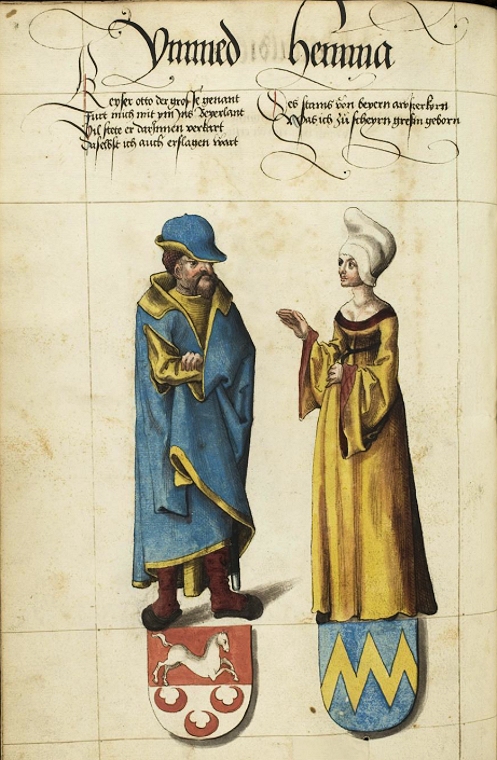 Ymmed Hemma
Keyser otto der grosse genant
Furt mich mit ym Ins Beyerlant
Vil stete er darInnen verhart
Daselbst ich auch erslagen wart
Des stams von beyern auszerkorn
Was ich zu scheyrn grefin geborn